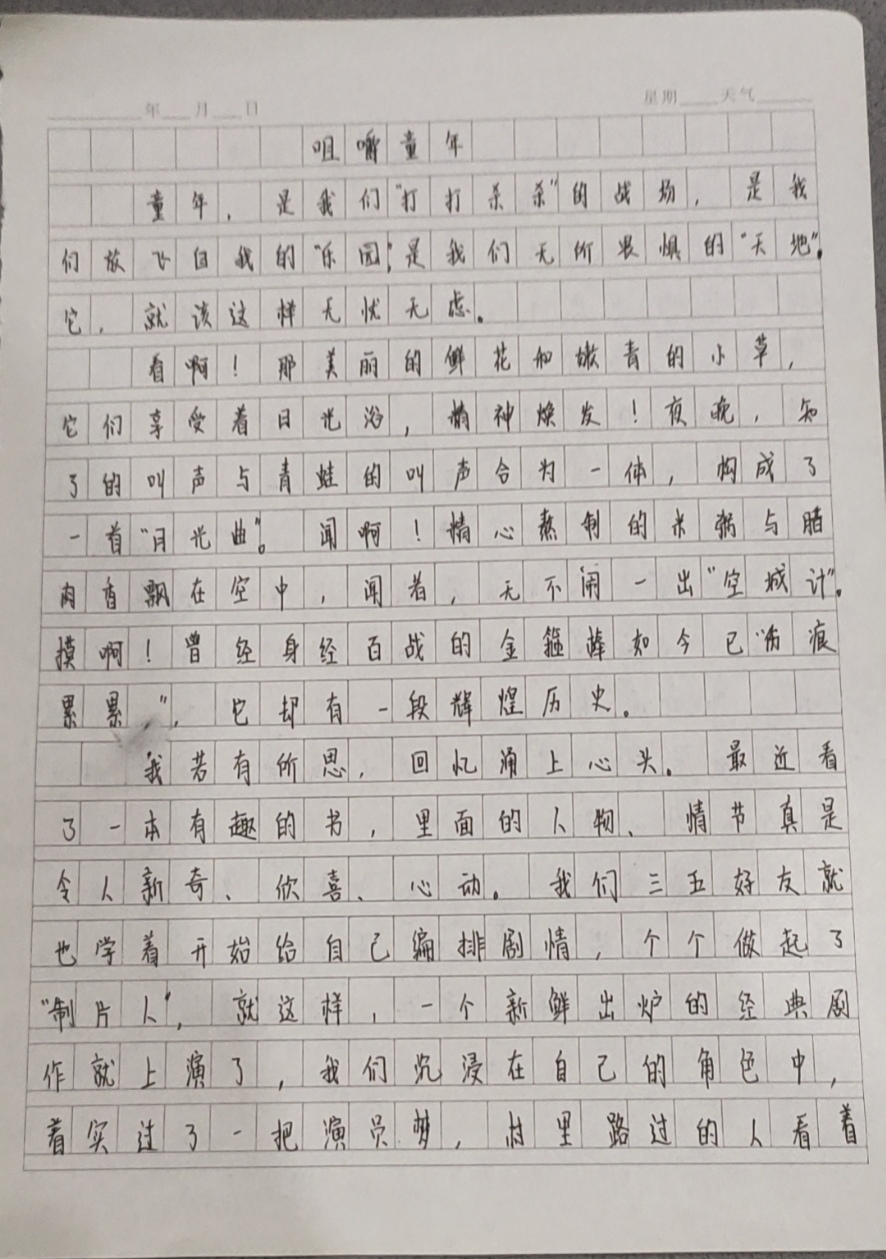 年 月 日 星期 天气
咀嚼童年
童年，是我们“打打杀杀”的战场，是我
们放飞自我的“乐园”，是我们无所畏惧的“天地”。
它，就该这样无忧无虑。
看啊！那美丽的鲜花和嫩青的小草，
它们享受着日光浴，精神焕发！夜晚，知
了的叫声与青蛙的叫声合为一体，构成了
一首“月光曲”。闻啊！精心熬制的米粥与腊
肉香飘在空中，闻着，无不闹一出“空城计”。
摸啊！曾经身经百战的金箍棒如今已“伤痕
累累”，它却有一段辉煌历史。
我若有所思，回忆涌上心头。最近看
了一本有趣的书，里面的人物、情节真是
令人新奇、欣喜、心动。我们三五好友就
也学着开始给自己编排剧情，个个做起了
“制片人”，就这样，一个新鲜出炉的经典剧
作就上演了，我们沉浸在自己的角色中，
着实过了一把演员梦，村里路过的人看着